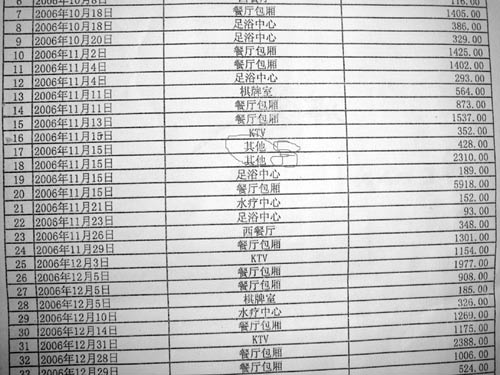 6 2006年10月8日 西餐厅 116.00
7 2006年10月18日 餐厅包厢 1405.00
8 2006年10月18日 足浴中心 386.00
9 2006年10月20日 足浴中心 329.00
10 2006年11月2日 餐厅包厢 1425.00
11 2006年11月4日 餐厅包厢 1402.00
12 2006年11月4日 足浴中心 293.00
13 2006年11月11日 棋牌室 564.00
14 2006年11月11日 餐厅包厢 873.00
15 2006年11月13日 餐厅包厢 1537.00
16 2006年11月15日 KTV 352.00
17 2006年11月15日 其他 428.00
18 2006年11月15日 其他 2310.00
19 2006年11月15日 足浴中心 189.00
20 2006年11月15日 餐厅包厢 5918.00
21 2006年11月21日 水疗中心 152.00
22 2006年11月23日 足浴中心 93.00
23 2006年11月24日 西餐厅 348.00
24 2006年11月29日 餐厅包厢 1301.00
25 2006年12月3日 KTV 1154.00
26 2006年12月5日 餐厅包厢 1977.00
27 2006年12月5日 餐厅包厢 908.00
28 2006年12月5日 棋牌室 185.00
29 2006年12月10日 水疗中心 326.00
30 2006年12月14日 餐厅包厢 1269.00
31 2006年12月31日 KTV 1175.00
32 2006年12月28日 餐厅包厢 2388.00
33 2006年12月29日 餐厅包厢 1006.00
524.00